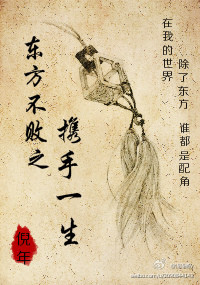 在我的世界
除了东方 谁都是配角
东方不败之
携手一生
倪年